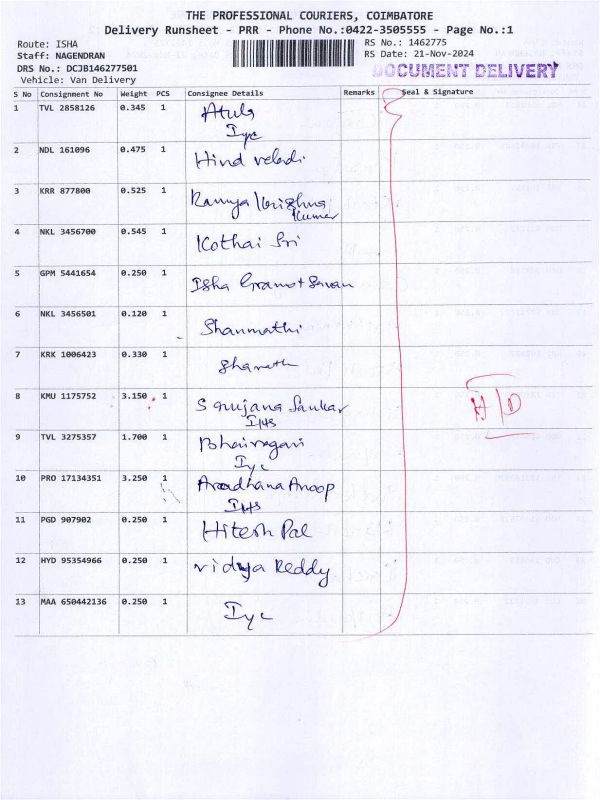 THE PROFESSIONAL COURIERS, COIMBATORE
Delivery Runsheet - PRR - Phone No.:0422-3505555 - Page No.:1
Route: ISHA
Staff: NAGENDRAN
DRS No.: DCJB146277501
Vehicle: Van Delivery
RS No.: 1462775
RS Date: 21-Nov-2024
DOCUMENT DELIVERY
S No Consignment No Weight PCS Consignee Details Remarks Seal & Signature
1 TVL 2858126 0.345 1 Atul
Iyc
2 NDL 161096 0.475 1 Hind
3 KRR 877800 0.525 1 Ramya Krishna
Kumar
4 NKL 3456700 0.545 1 Kothai Sri
5 GPM 5441654 0.250 1 Isha Gramot
6 NKL 3456501 0.120 1 Shanmathi
7 KRK 1006423 0.330 1 Sharath
8 KMU 1175752 3.150 1 Srujana Sankar
IHS
9 TVL 3275357 1.700 1 Bhairagavi
Iyc
10 PRO 17134351 3.250 1 Aradhana Anoop
IHS
11 PGD 907902 0.250 1 Hitesh Pal
12 HYD 95354966 0.250 1 vidya Reddy
13 MAA 650442136 0.250 1 Iyc
H/D